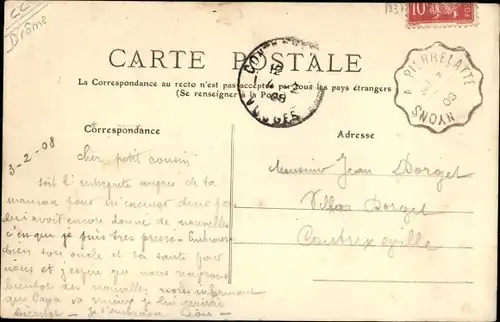 CC
Drôme
10
CARTE POSTALE
La Correspondance au recto n'est pas acceptée par tous les pays étrangers
(Se renseigner à la Poste)
PIERRELATTE A NYONS
03
VOSGES
Correspondance
Adresse
3-2-08
Cher petit cousin
soit l'interprète auprès de ta
maman pour m'excuser de ne pas
lui avoir encore donné de nouvelles
c'en que je suis très pressé Embrasse
bien ton oncle et ta tante pour
nous et j'espère que nous
bientôt des nouvelles nous informant
que Papa va mieux je lui écrirai
bientôt - Je t'embrasse
Monsieur Jean Dorget
Villa Dorget
Contrexeville